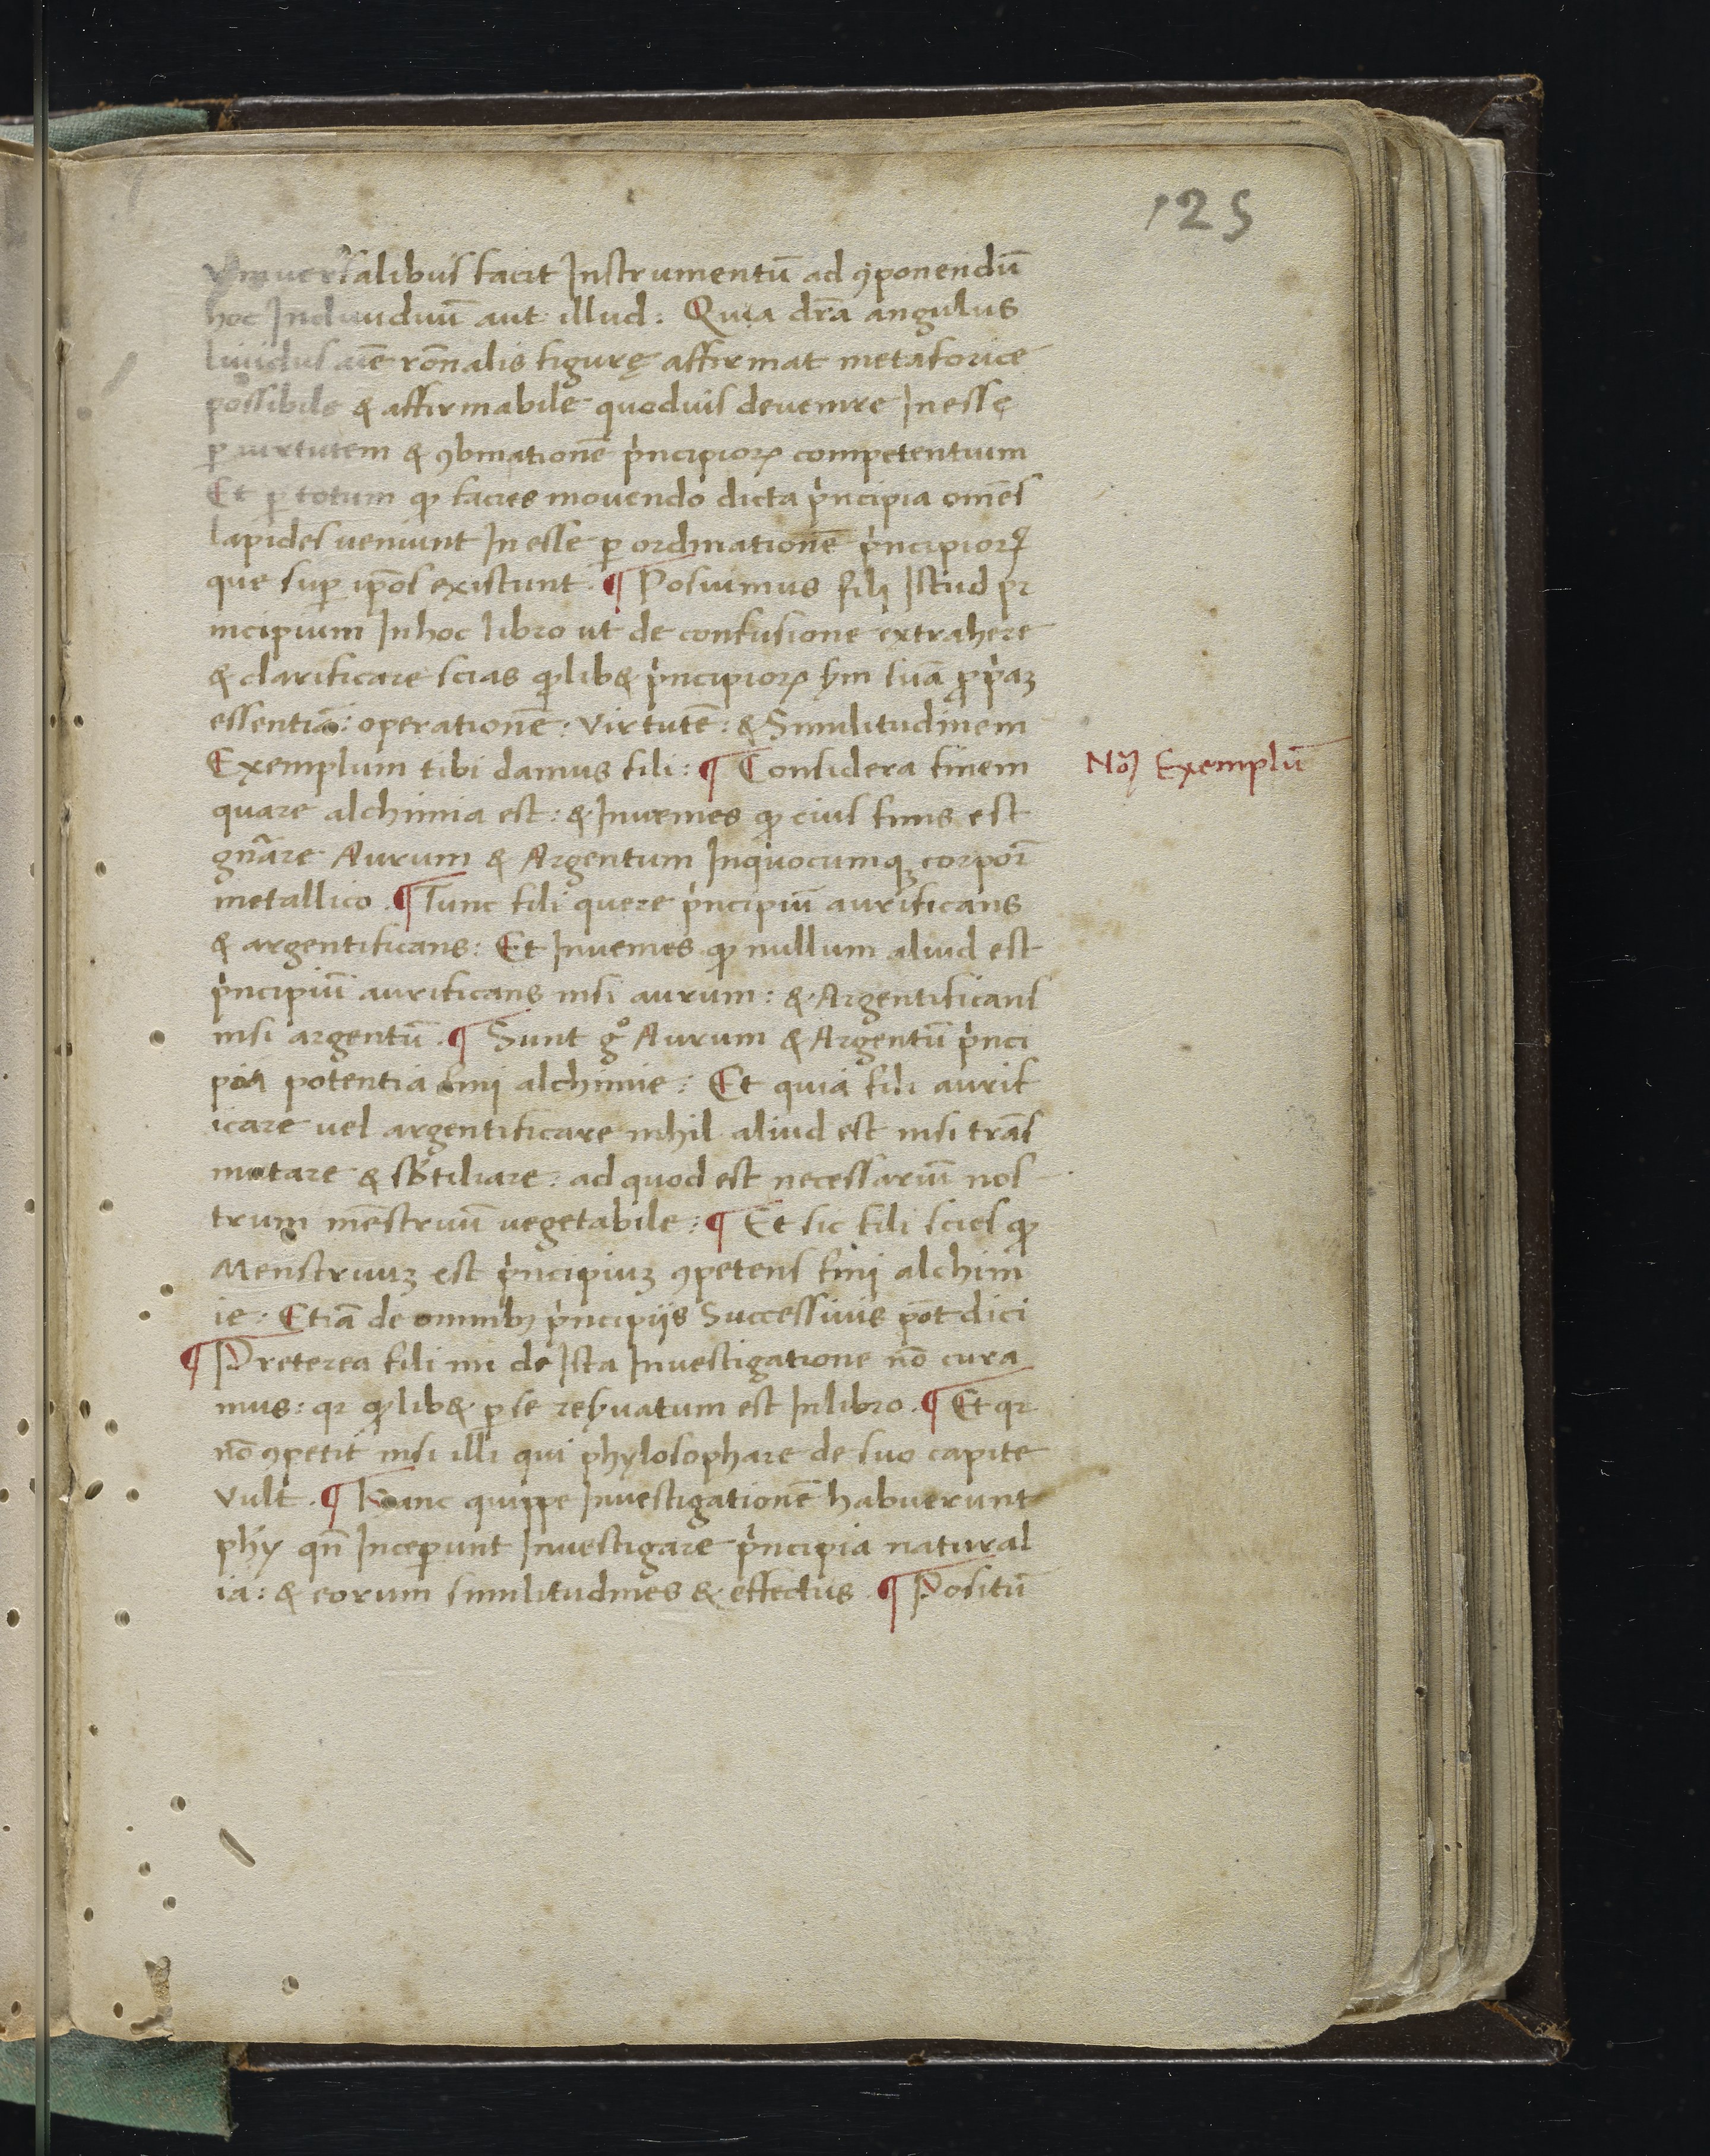 125
vniuersalibus facit Instrumentū ad ꝯponendū
hoc Indiuiduū aut illud: Quia dr̄a angulus
liuidus aīe rōnalis figurę affirmat metaforice
possibile & affirmabile quoduis deuenire In essę
ꝑ uirtutem & ꝯbinationē pⁱncipioꝝ competentium
Et ꝑ totum ꝙ facies mouendo dicta pⁱncipia om̄es
lapides ueniunt In esse ꝑ ordinationē pⁱncipioꝝ
que suꝑ ip̄os existunt. ¶ Posuimus fili Istud pr
incipium Inhoc libro ut de confusione extrahere
& clarificare scias ꝙlib& pⁱncipioꝝ ẜm suā ꝓpⁱaꝫ
essentiā: operationē: virtutē: & Similitudinem
Exemplum tibi damus fili: ¶ Considera finem
Noͣ Exemplū
quare alchimia est: & Inuenies ꝙ eius finis est
gn̄are Aurum & Argentum Inquocumqꝫ corpori
metallico. ¶ Tunc fili quere pⁱncipiū aurificans
& argentificans: Et Inuenies ꝙ nullum aliud est
pⁱncipiū aurificans nisi aurum: & Argentificans
nisi argentū. ¶ Sunt gͦ Aurum & Argentū pⁱnci
pia potentia fini alchimie: Et quia fili aurif
icare uel argentificare nihil aliud est nisi trās
mutare & sƀtiliare: ad quod est necessariū nos
trum mēstruū uegetabile: ¶ Et sic fili scies ꝙ
Menstruuꝫ est pⁱncipiuꝫ ꝯpetens fini alchim
ie: Etiā de omnibꝫ pⁱncipiis Successiuis pōt dici
¶ Preterea fili mi de Ista Inuestigatione nō cura
mus: qr ꝙlib& ꝑ se reẜuatum est Inlibro. ¶ Et qr
nō ꝯpetit nisi illi qui phylosophare de suo capite
vult. ¶ Hanc quippe Inuestigationē habuerunt
phy qn̄ Inceꝑunt Inuestigare pⁱncipia natural
ia: & eorum similitudines & effectus. ¶ Positū